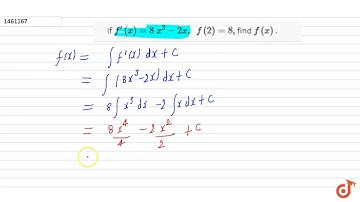 1461167
If f'(x) = 8 x³ − 2x, f(2) = 8, find f(x).
f(x) = ∫ f'(x) dx + C
= ∫ (8x³-2x) dx + C
= 8 ∫ x³ dx - 2 ∫ x dx + C
= 8 x⁴/4 - 2 x²/2 + C
=